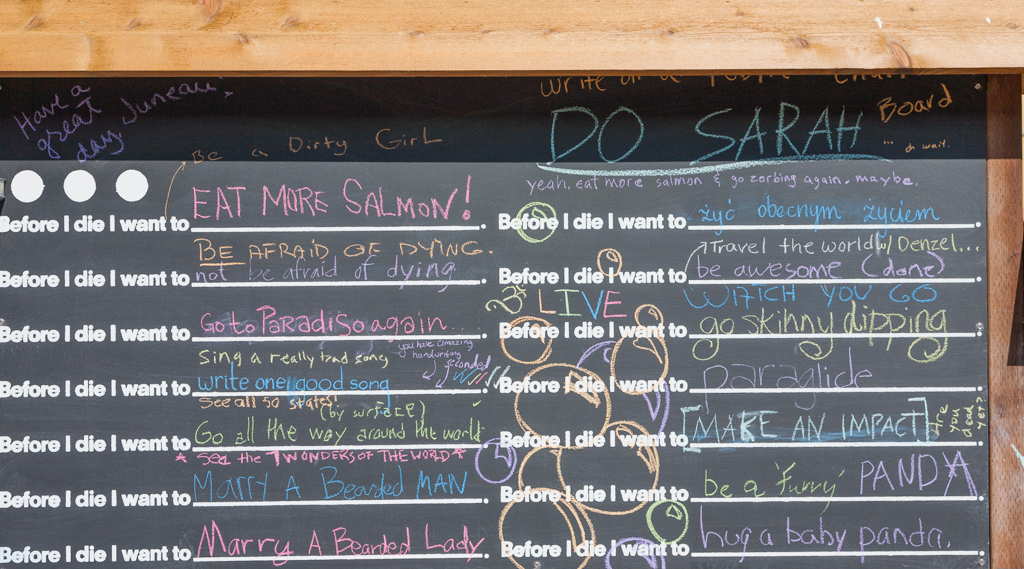 Have a
great
day Juneau,
Be a Dirty Girl
Before I die I want to EAT MORE SALMON!
BE AFRAID OF DYING.
Before I die I want to not be afraid of dying.
Before I die I want to Go to PaRaDiSo again...
Sing a really bad song
you have amazing
handwriting
seconded
Before I die I want to write one good song.
See all 50 states!
(by surface)
Before I die I want to Go all the way around the world.
* See the 7 WONDERS OF THE WORLD *
Before I die I want to Marry A Bearded MAN.
Before I die I want to Marry A Bearded Lady.
Write on a
Board
... oh wait.
DO SARAH
yeah. eat more salmon & go zorbing again. maybe.
Before I die I want to żyć obecnym życiem.
Travel the world w/ Denzel...
Before I die I want to be awesome (done).
LIVE WATCH YOU GO
Before I die I want to go skinny dipping.
Before I die I want to paraglide.
Before I die I want to [MAKE AN IMPACT].
Are
you
dead
yet?
Before I die I want to be a furry PANDA.
Before I die I want to hug a baby panda.